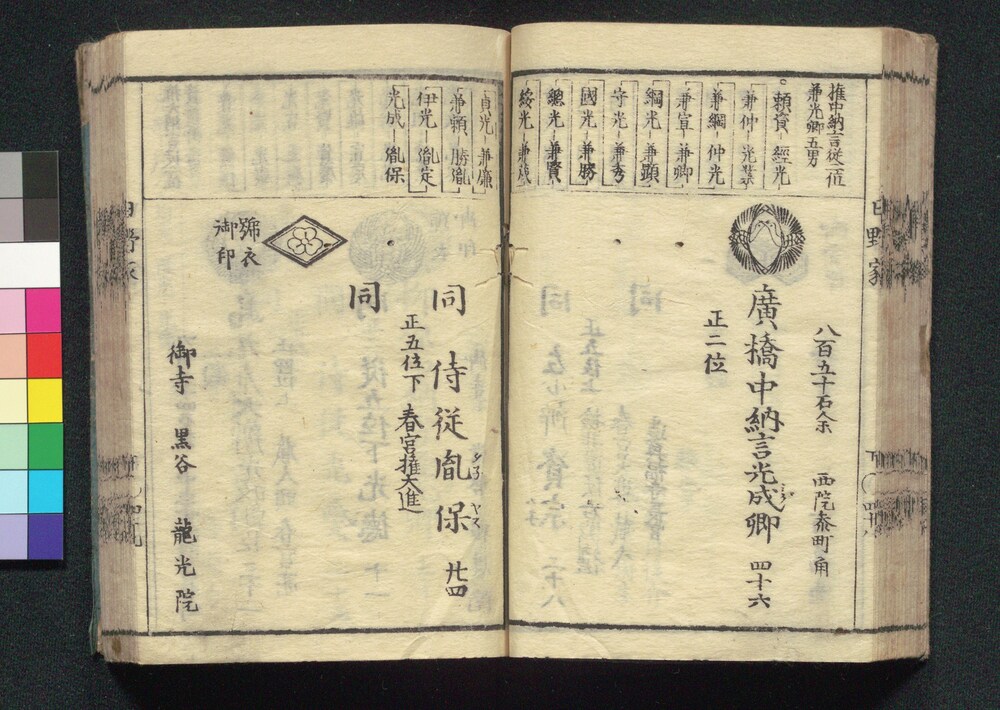 日野家
権中納言従一位
兼光卿五男
頼資 経光
兼仲 光業
兼綱 仲光
兼宣 兼郷
綱光 兼顕
守光 兼秀
國光 兼勝
總光 兼賢
綏光 兼茂
貞光 兼廉
兼頼 勝胤
伊光 胤定
光成 胤保
八百五十石余 西院参町角
廣橋中納言光成卿 四十六
正二位
同 侍従胤保 廿四
正五位下 春宮権大進
同
號衣
御印
御寺 黒谷 龍光院
日野家